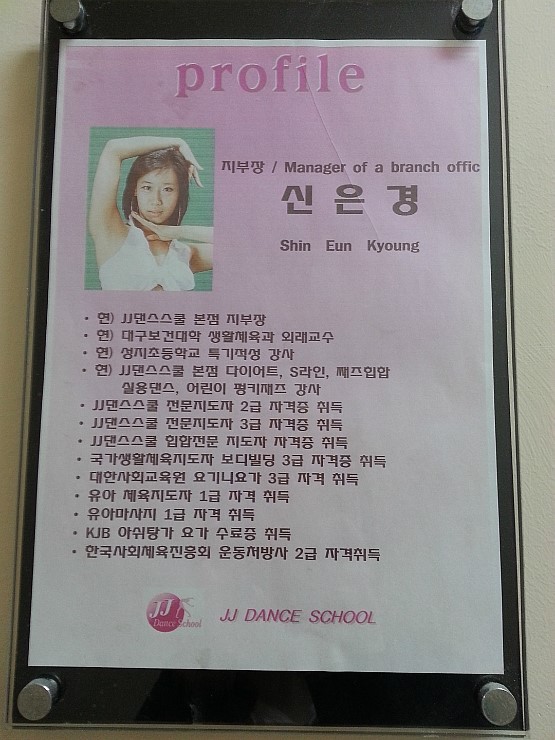 profile
지부장 / Manager of a branch offic
신 은 경
Shin Eun Kyoung
• 현) JJ댄스스쿨 본점 지부장
• 현) 대구보건대학 생활체육과 외래교수
• 현) 성지초등학교 특기적성 강사
• 현) JJ댄스스쿨 본점 다이어트, S라인, 째즈힙합
실용댄스, 어린이 펑키재즈 강사
• JJ댄스스쿨 전문지도자 2급 자격증 취득
• JJ댄스스쿨 전문지도자 3급 자격증 취득
• JJ댄스스쿨 힙합전문 지도자 자격증 취득
• 국가생활체육지도자 보디빌딩 3급 자격증 취득
• 대한사회교육원 요기니요가 3급 자격증 취득
• 유아 체육지도자 1급 자격 취득
• 유아마사지 1급 자격 취득
• KJB 아쉬탕가 요가 수료증 취득
• 한국사회체육진흥회 운동처방사 2급 자격취득
JJ
Dance School
JJ DANCE SCHOOL